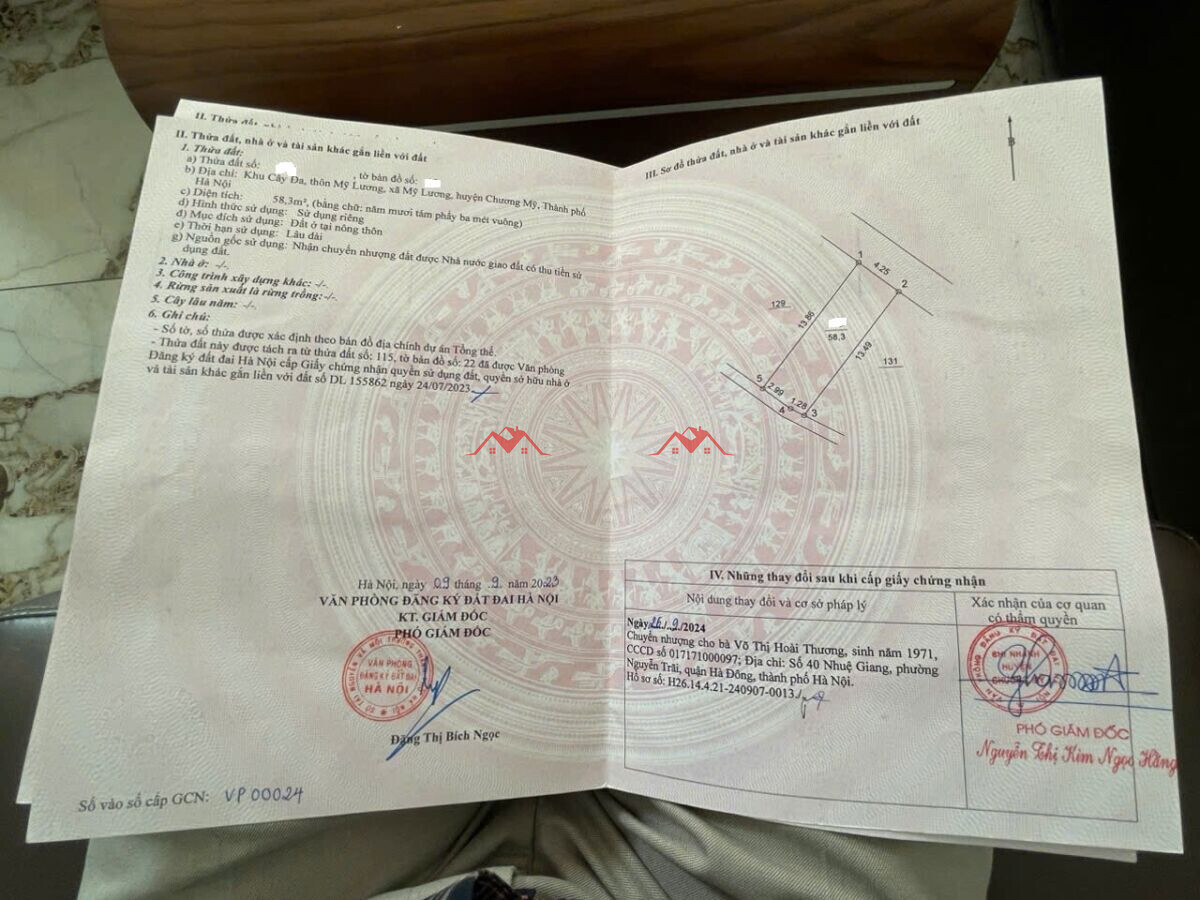 II. Thửa đất,
II. Thửa đất, nhà ở và tài sản khác gắn liền với đất
1. Thửa đất:
a) Thửa đất số: , tờ bản đồ số:
b) Địa chỉ: Khu Cây Đa, thôn Mỹ Lương, xã Mỹ Lương, huyện Chương Mỹ, Thành phố
Hà Nội
c) Diện tích: 58,3m², (bằng chữ: năm mươi tám phẩy ba mét vuông)
d) Hình thức sử dụng: Sử dụng riêng
đ) Mục đích sử dụng: Đất ở tại nông thôn
e) Thời hạn sử dụng: Lâu dài
g) Nguồn gốc sử dụng: Nhận chuyển nhượng đất được Nhà nước giao đất có thu tiền sử
dụng đất.
2. Nhà ở: -/-.
3. Công trình xây dựng khác: -/-.
4. Rừng sản xuất là rừng trồng: -/-.
5. Cây lâu năm: -/-.
6. Ghi chú:
- Số tờ, số thửa được xác định theo bản đồ địa chính dự án Tổng thể.
- Thửa đất này được tách ra từ thửa đất số: 115, tờ bản đồ số: 22 đã được Văn phòng
Đăng ký đất đai Hà Nội cấp Giấy chứng nhận quyền sử dụng đất, quyền sở hữu nhà ở
và tài sản khác gắn liền với đất số DL 155862 ngày 24/07/2023
Hà Nội, ngày 09 tháng 9 năm 2023
VĂN PHÒNG ĐĂNG KÝ ĐẤT ĐAI HÀ NỘI
KT. GIÁM ĐỐC
PHÓ GIÁM ĐỐC
VĂN PHÒNG
ĐĂNG KÝ ĐẤT ĐAI
HÀ NỘI
Đặng Thị Bích Ngọc
Số vào sổ cấp GCN: VP 00024
III. Sơ đồ thửa đất, nhà ở và tài sản khác gắn liền với đất
B
1
4.25
2
129
13.86
58,3
13.49
131
5
2.99
1.28
4
3
IV. Những thay đổi sau khi cấp giấy chứng nhận
Nội dung thay đổi và cơ sở pháp lý
Xác nhận của cơ quan
có thẩm quyền
Ngày 26/9/2024
Chuyển nhượng cho bà Võ Thị Hoài Thương, sinh năm 1971,
CCCD số 017171000097; Địa chỉ: Số 40 Nhuệ Giang, phường
Nguyễn Trãi, quận Hà Đông, thành phố Hà Nội.
Hồ sơ số: H26.14.4.21-240907-0013
CHI NHÁNH
HUYỆN
PHÓ GIÁM ĐỐC
Nguyễn Thị Kim Ngọc Hằng